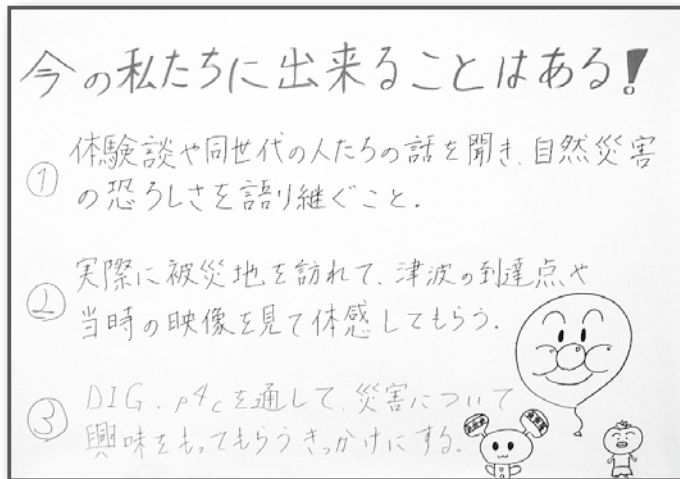 今の私たちに出来ることはある!
① 体験談や同世代の人たちの話を聞き、自然災害
の恐ろしさを語り継ぐこと.
② 実際に被災地を訪れて、津波の到達点や
当時の映像を見て体感してもらう.
③ DIG、p4cを通して、災害について
興味をもってもらうきっかけにする.